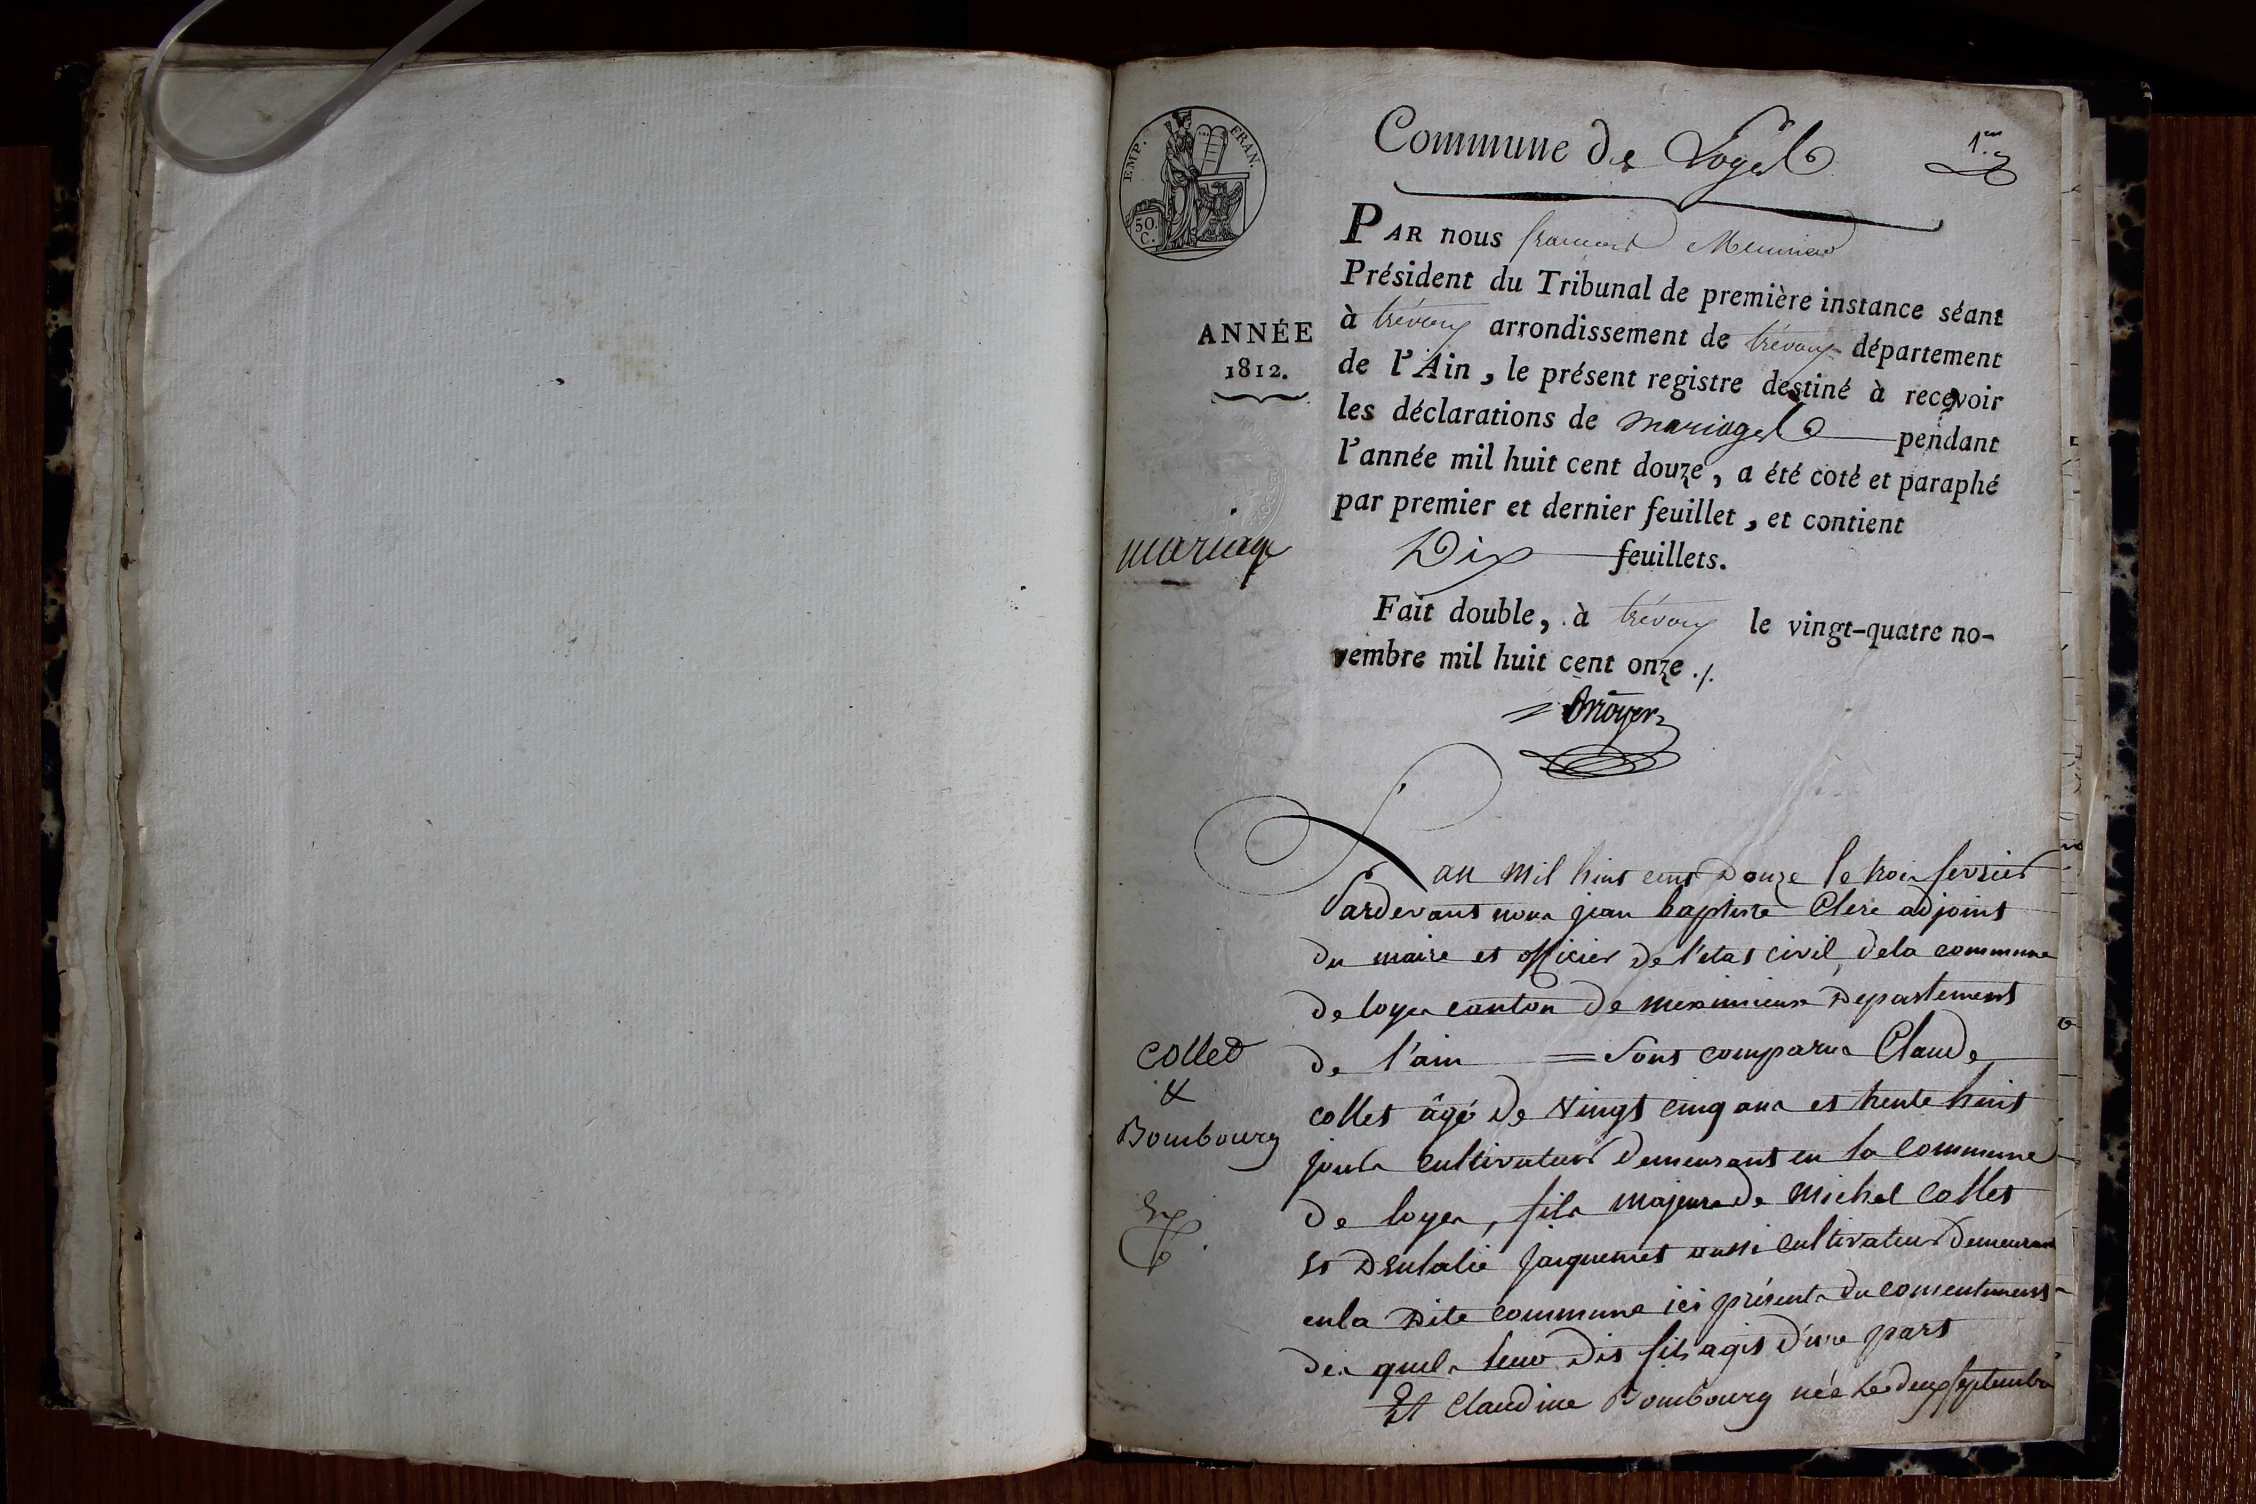 Commune de Loyes
1.er
EMP. FRAN.
50. C.
PAR nous françois Meunier
Président du Tribunal de première instance séant
à trévoux arrondissement de trévoux département
de l'Ain, le présent registre destiné à recevoir
les déclarations de mariages pendant
l'année mil huit cent douze, a été coté et paraphé
par premier et dernier feuillet, et contient
Dix feuillets.
Fait double, à trévoux le vingt-quatre no-
vembre mil huit cent onze ./.
ANNÉE
1812.
mariage
L'an mil huit cent Douze le trois fevrier
Pardevant nous jean baptiste Clerc adjoint
du maire et officier de l'etat civil dela commune
de loyes canton de meximieux Departement
de l'ain = Sont comparus Claude
collet âgé de vingt cinq ans et trente huit
jours cultivateur demeurant en la commune
de loyes, fils majeur de Michel collet
et D'eulalie jacquemet aussi cultivateur demeurant
enla Dite commune ici présents du consentement
des quels leur dit fils agit d'une part
Et Claudine Bombourg née le deux septembre
collet
&
Bombourg